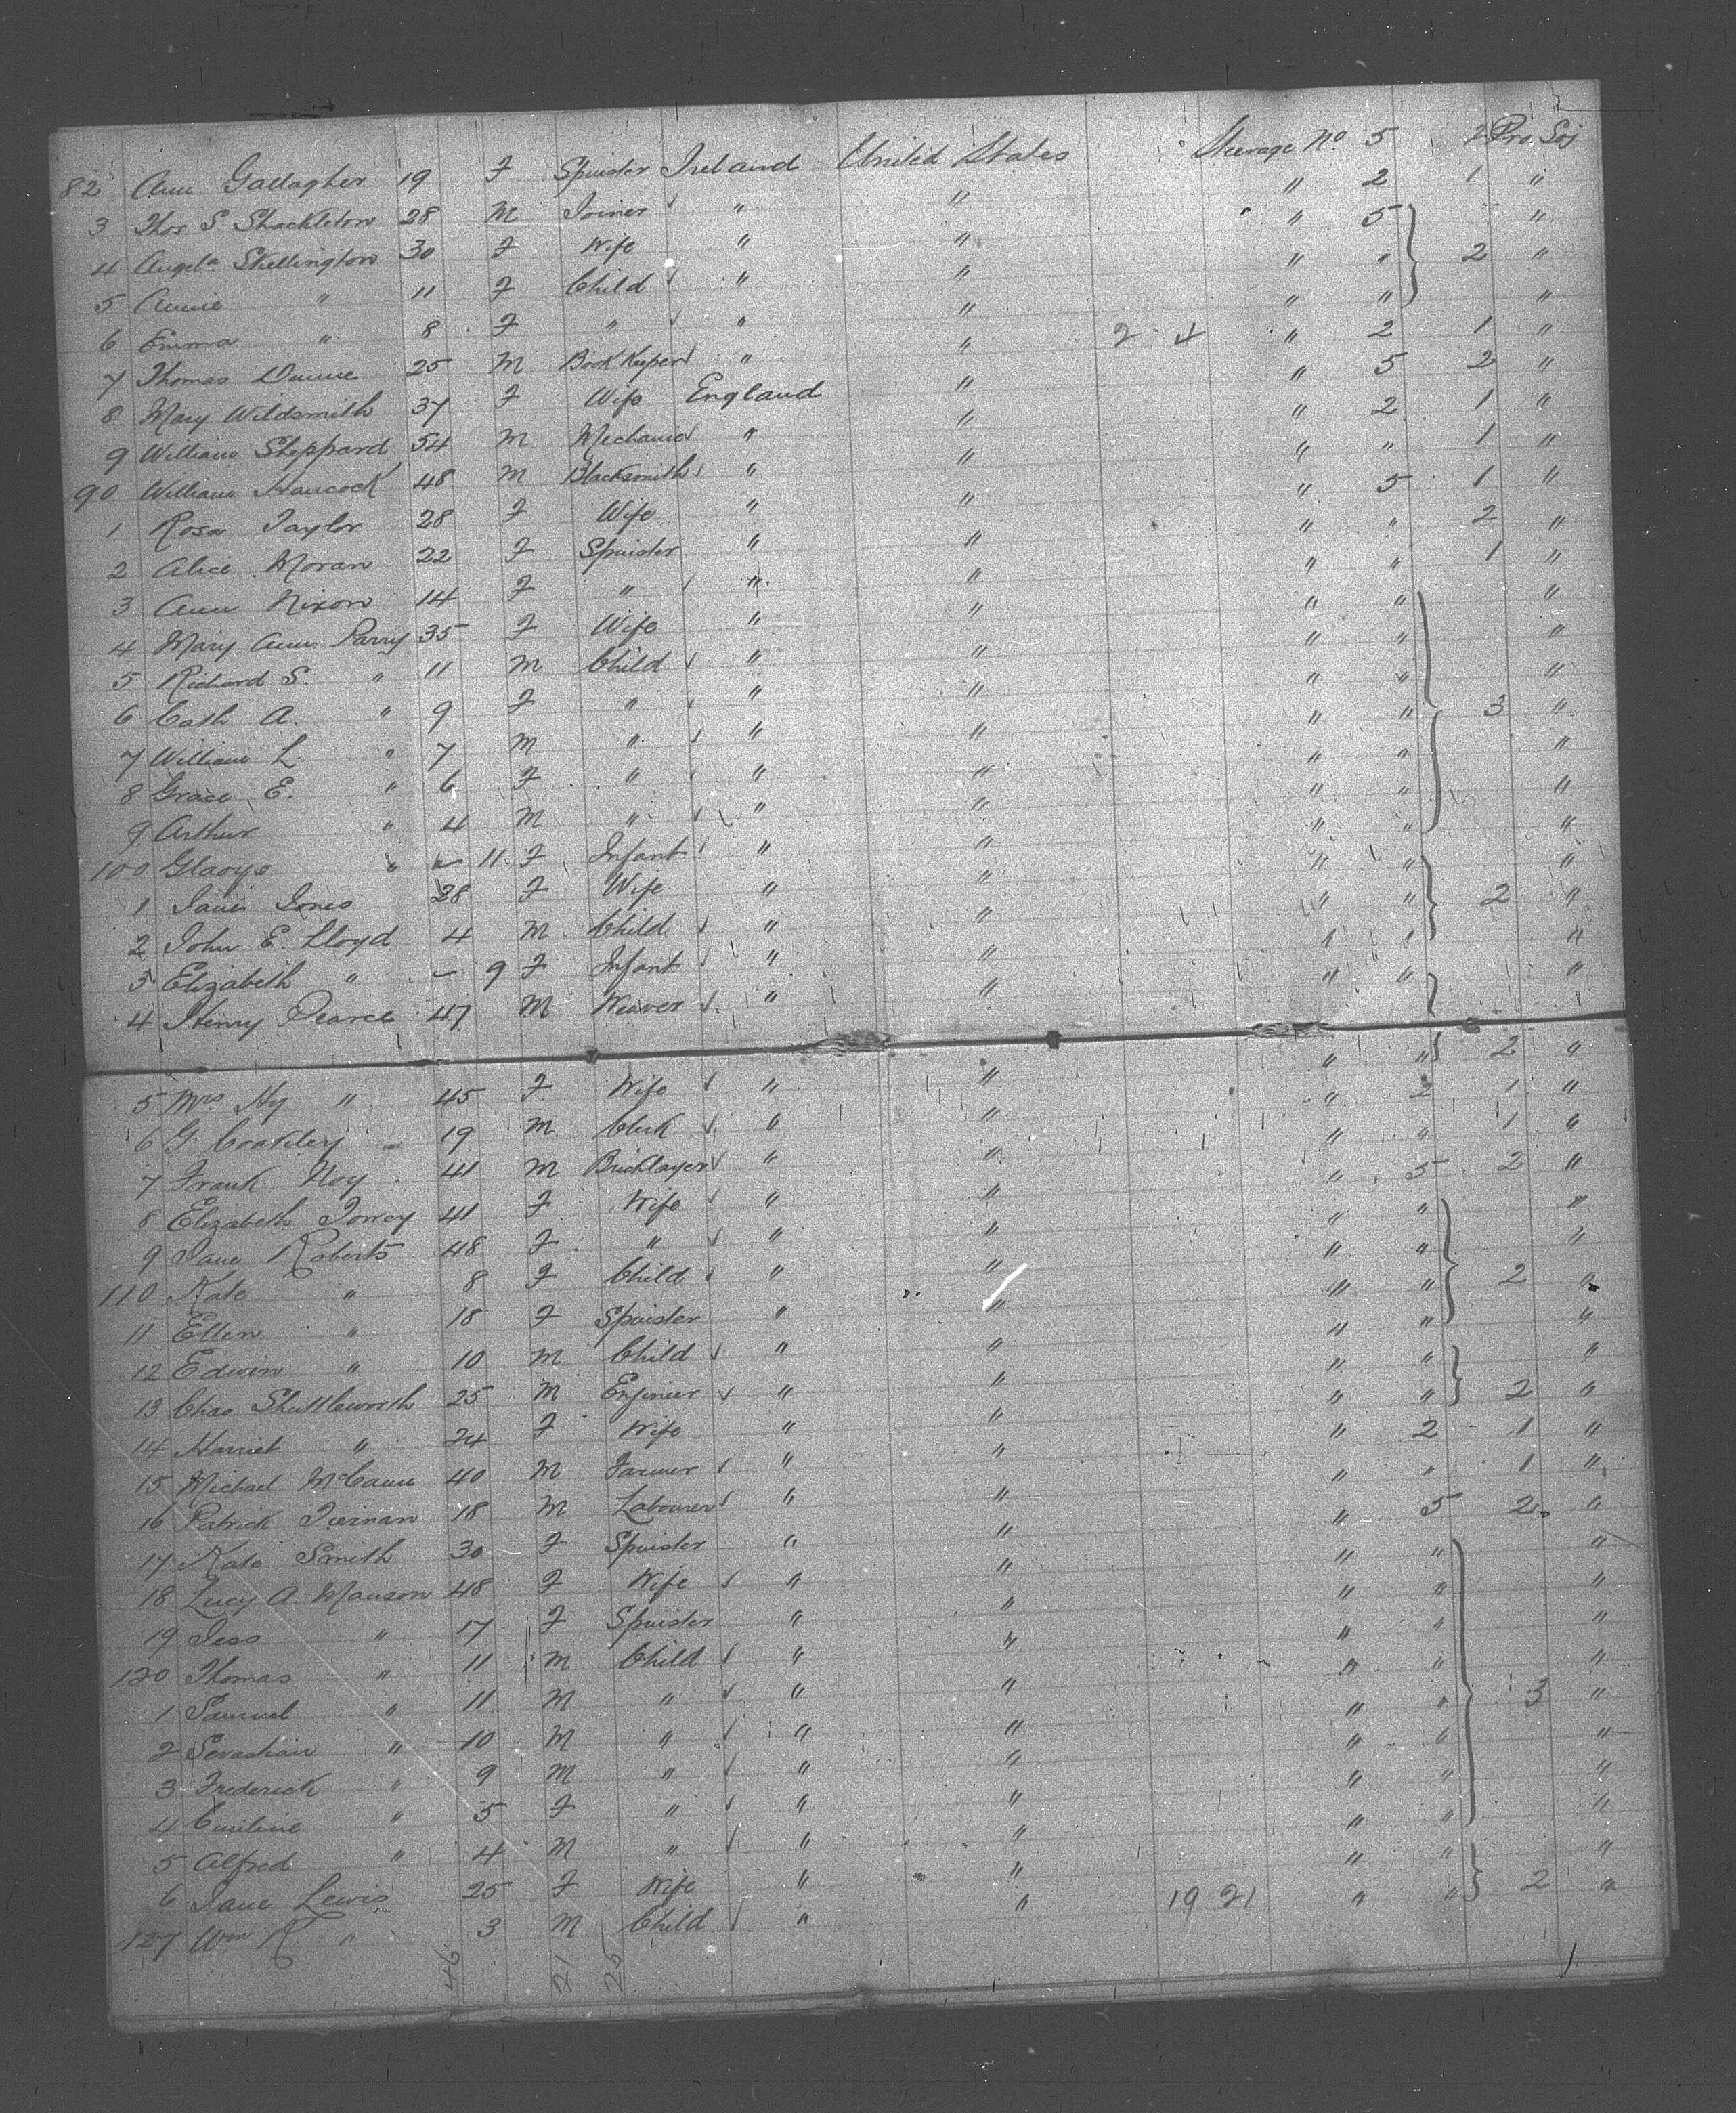 82 Ann Gallagher 19 F Spinster Ireland United States Steerage No 5 2 Pro. Soj
3 Thos S Shackleton 28 M Joiner " " " 2 1 "
4 Angela Skellington 30 F Wife " " " 5 "
5 Annie " 11 F Child " " " " 2 "
6 Emma " 8 F " " " " " "
7 Thomas Dunne 25 M Book Keeper " " 2 4 " 2 1 "
8 Mary Wildsmith 37 F Wife England " " 5 2 "
9 William Sheppard 54 M Mechanic " " " 2 1 "
90 William Hancock 48 M Blacksmith " " " " 1 "
1 Rosa Taylor 28 F Wife " " " 5 1 "
2 Alice Moran 22 F Spinster " " " " 2 "
3 Ann Nixon 14 F " " " " " 1 "
4 Mary Ann Parry 35 F Wife " " " " "
5 Richard S. " 11 M Child " " " " "
6 Cath A. " 9 F " " " " " "
7 William L. " 7 M " " " " " 3 "
8 Grace E. " 6 F " " " " " "
9 Arthur " 4 M " " " " " "
100 Gladys " 11 F Infant " " " " "
1 Janes Jones 28 F Wife " " " " "
2 John E. Lloyd 4 M Child " " " " 2 "
3 Elizabeth " 9 F Infant " " " " "
4 Henry Pearce 47 M Weaver " " " " "
5 Mrs Hy " 45 F Wife " " " " 2 "
6 G. Coakley 19 M Clerk " " " 2 1 "
7 Frank Hoy 41 M Bricklayer " " " " 1 "
8 Elizabeth Torrey 41 F Wife " " " 5 2 "
9 Jane Roberts 48 F " " " " " "
110 Kate " 8 F Child " " " " "
11 Ellen " 18 F Spinster " " " " 2 "
12 Edwin " 10 M Child " " " " "
13 Chas Shuttleworth 25 M Engineer " " " " "
14 Harriet " 24 F Wife " " " " 2 "
15 Michael McCann 40 M Farmer " " " 2 1 "
16 Patrick Tiernan 18 M Labourer " " " " 1 "
17 Kate Smith 30 F Spinster " " " 5 2 "
18 Lucy A. Manson 48 F Wife " " " " "
19 Jess " 17 F Spinster " " " " "
120 Thomas " 11 M Child " " " " "
1 Samuel " 11 M " " " " " "
2 " 10 M " " " " " 3 "
3 Frederick " 9 M " " " " " "
4 Emiline " 5 F " " " " " "
5 Alfred " 4 M " " " " " "
6 Jane Lewis 25 F Wife " " " " "
127 Wm R " 3 M Child " " 19 21 " " 2 "
46 21 26